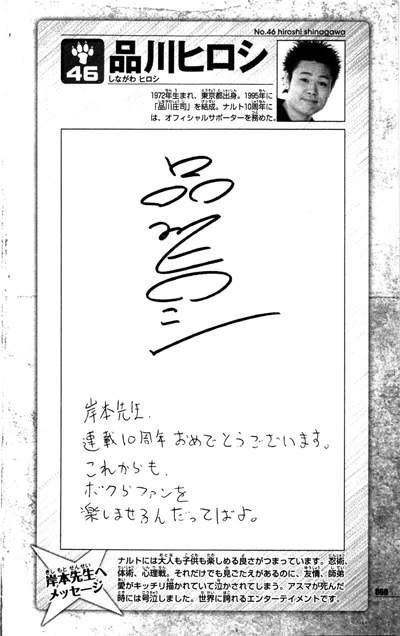 No.46 hiroshi shinagawa
46
品川ヒロシ
しながわ ヒロシ
1972年生まれ、東京都出身。1995年に
「品川庄司」を結成。ナルト10周年に
は、オフィシャルサポーターを務めた。
岸本先生、
連載10周年おめでとうございます。
これからも、
ボクらファンを
楽しませるんだってばよ。
岸本先生へ
メッセージ
ナルトには大人も子供も楽しめる良さがつまっています。忍術、
体術、心理戦。それだけでも見ごたえがあるのに、友情、師弟
愛がキッチリ描かれていて泣かされてしまう。アスマが死んだ
時には号泣しました。世界に誇れるエンターテイメントです。